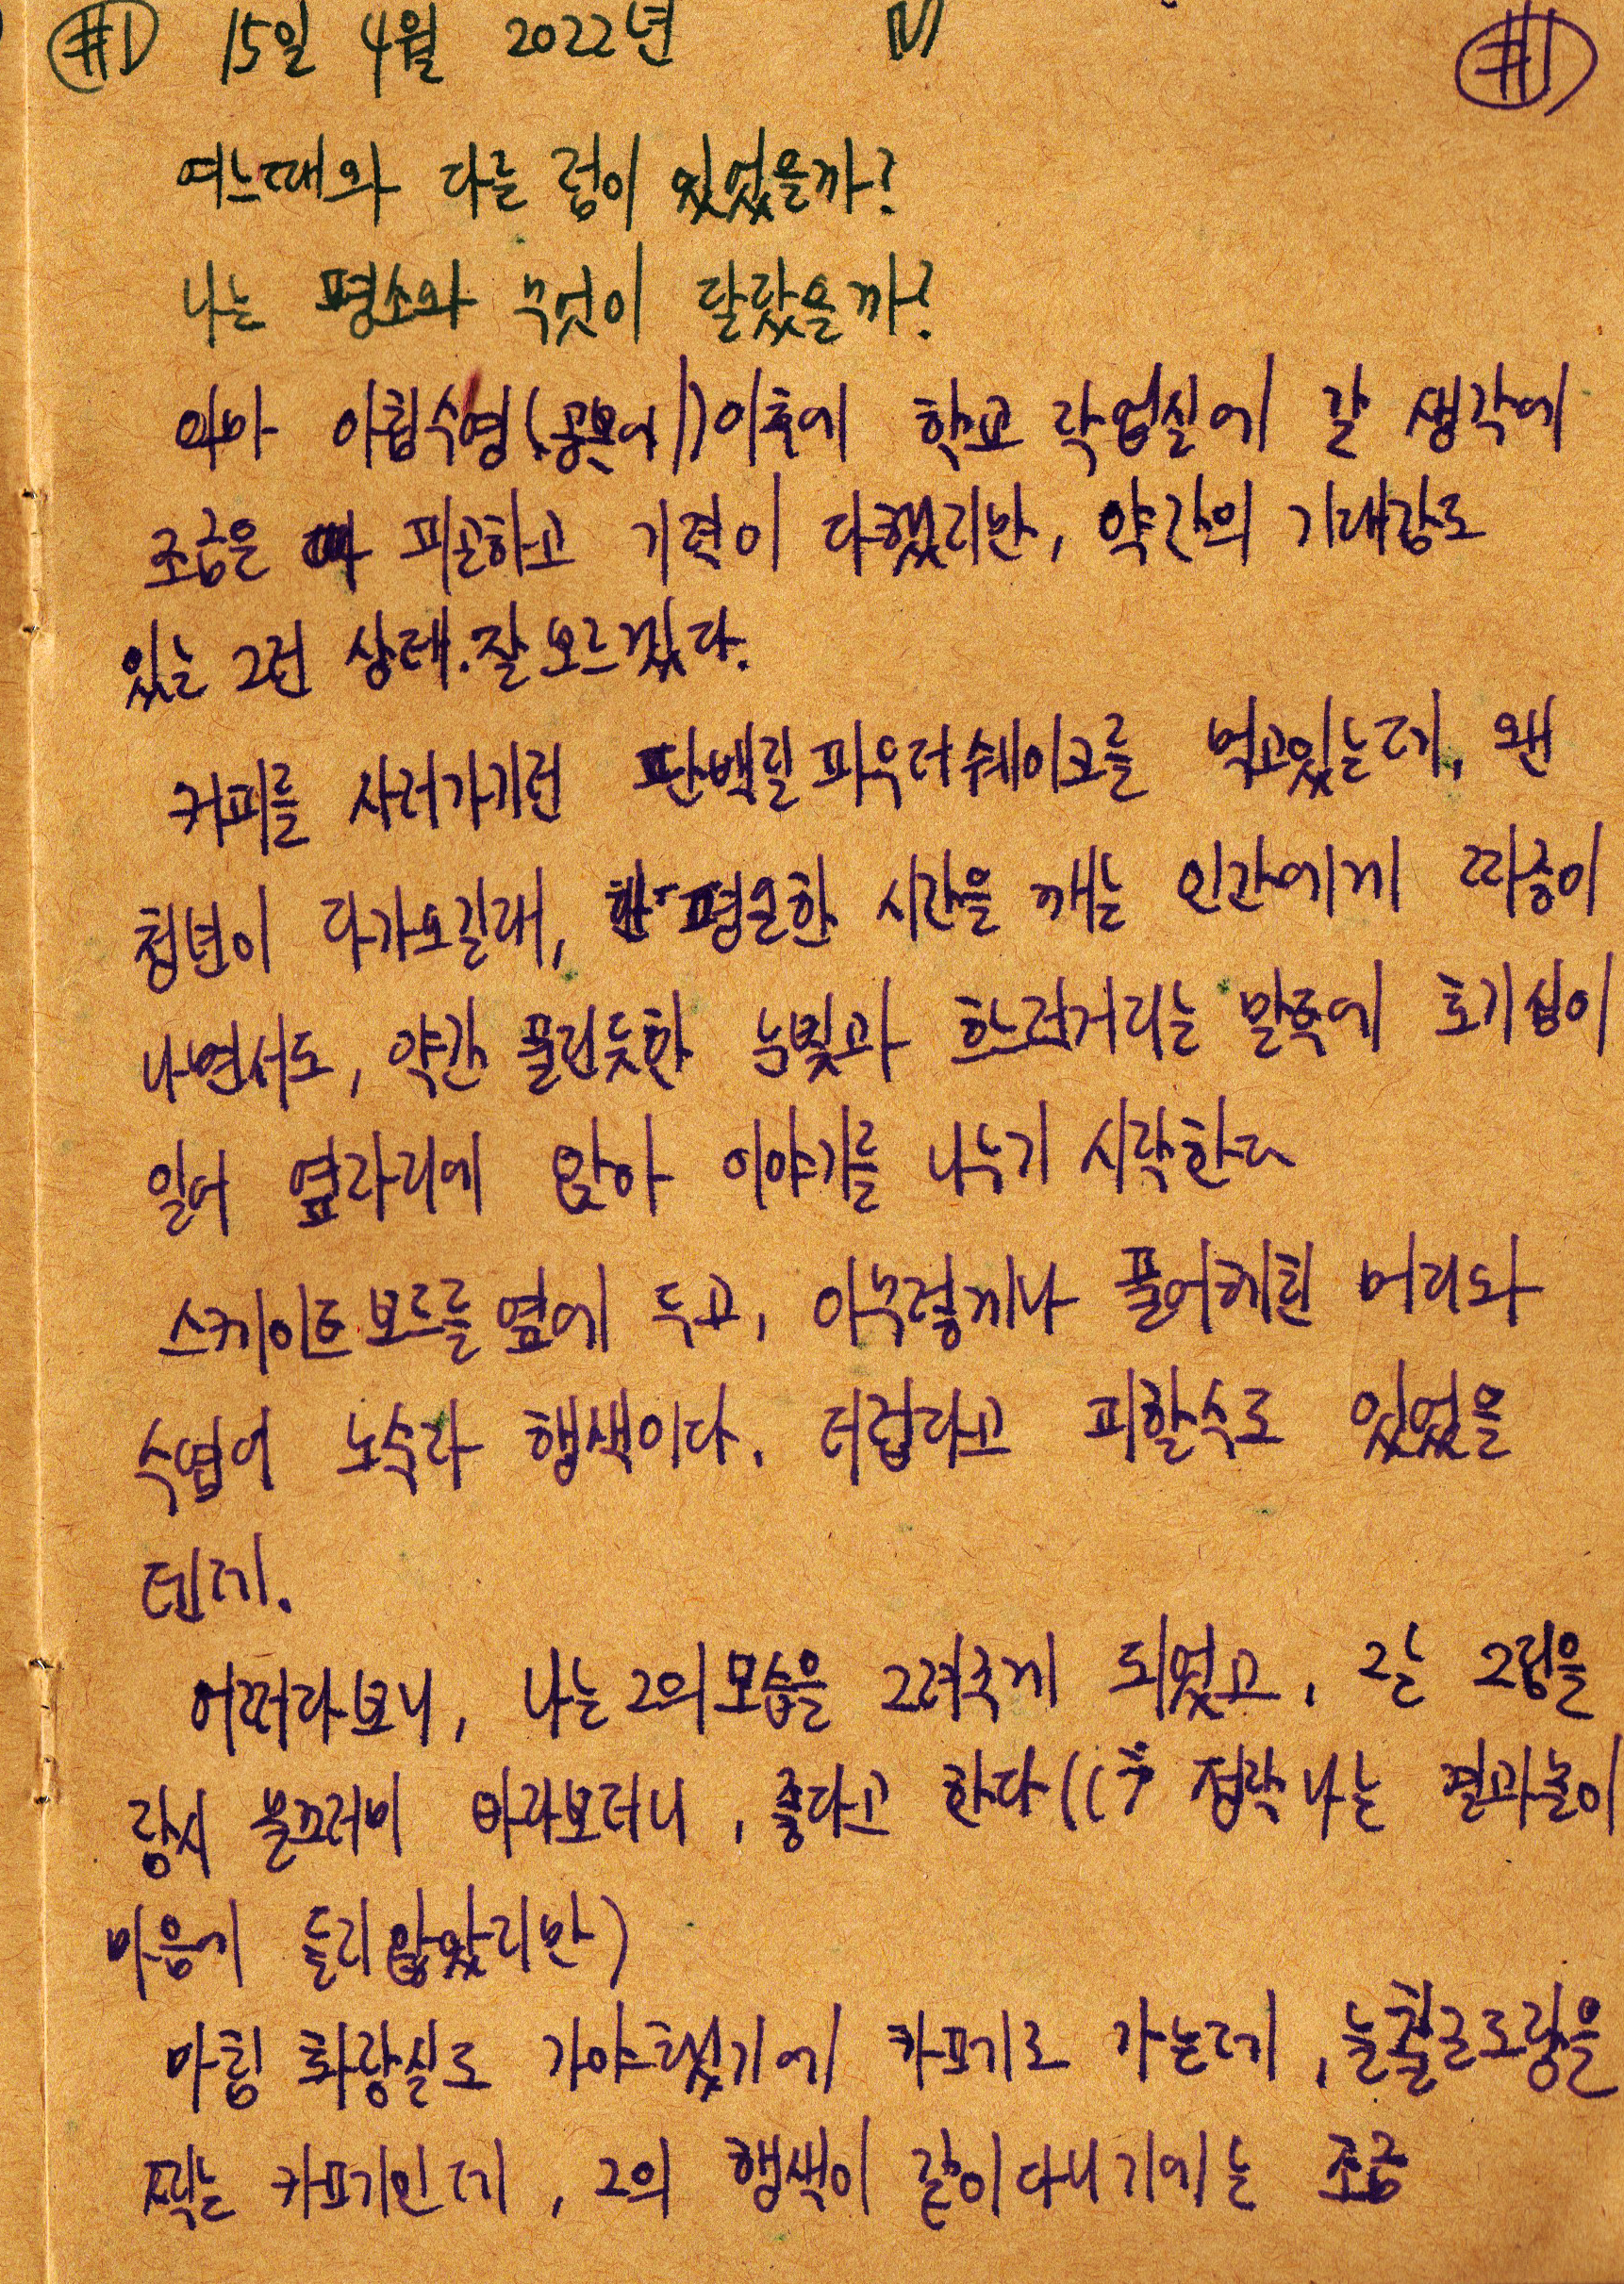 #1 15일 4월 2022년 #1
여느때와 다를 점이 있었을까?
나는 평소와 무엇이 달랐을까?
아마 아침수영( 이후에 학교 작업실에 갈 생각에
조금은 피곤하고 기력이 다했지만, 약간의 기대감도
있는 그런 상태. 잘 모르겠다.
커피를 사러가기전 단백질 파우더 쉐이크를 먹고있는데, 왠
청년이 다가오길래, 평온한 시간을 깨는 인간에게 짜증이
나면서도, 약간 풀린듯한 눈빛과 흐느적거리는 말투에 호기심이
일어 옆자리에 앉아 이야기를 나누기 시작한다
스케이트보드를 옆에 두고, 아무렇게나 풀어헤친 머리와
수염이 노숙자 행색이다. 더럽다고 피할수도 있었을
텐데.
어쩌다보니, 나는 그의 모습을 그려주게 되었고, 그는 그림을
잠시 물끄러미 바라보더니, 좋다고 한다 (( 정작 나는 결과물이
마음에 들지 않았지만)
마침 화장실로 가야했기에 카페로 가는데, 늘 출근도장을
찍는 카페인데, 그의 행색이 같이 다니기에는 조금